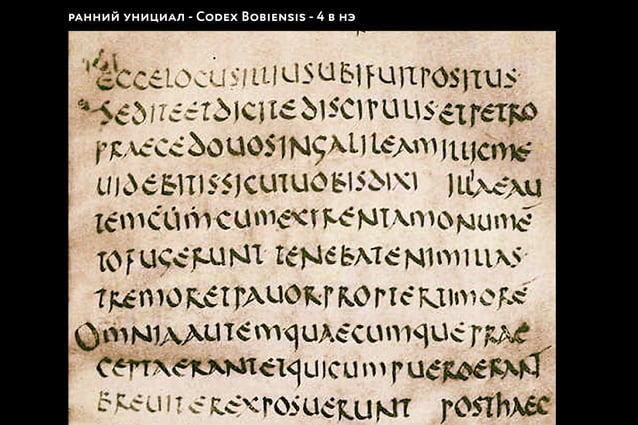 ранний унициал - Codex Bobiensis - 4 в нэ
ECCELOCUSILLIUSUBIFUITPOSITUS
SEDITEETDICITEDISCIPULISETPETRO
PRAECEDOUOSINGALILEAMILLICME
UIDEBITISSICUTUOBISDIXI ILLAEAU
TEMCUMCUMEXIRENTAMONUMĒ
TOFUGERUNT TENEBATENIMILLAS
TREMORETPAUORPROPTERTIMORĒ
OMNIAAUTEMQUAECUMQUEPRAE
CEPTAERANTETQUICUMPUEROERANT
BREUITEREXPOSUERUNT POSTHAEC